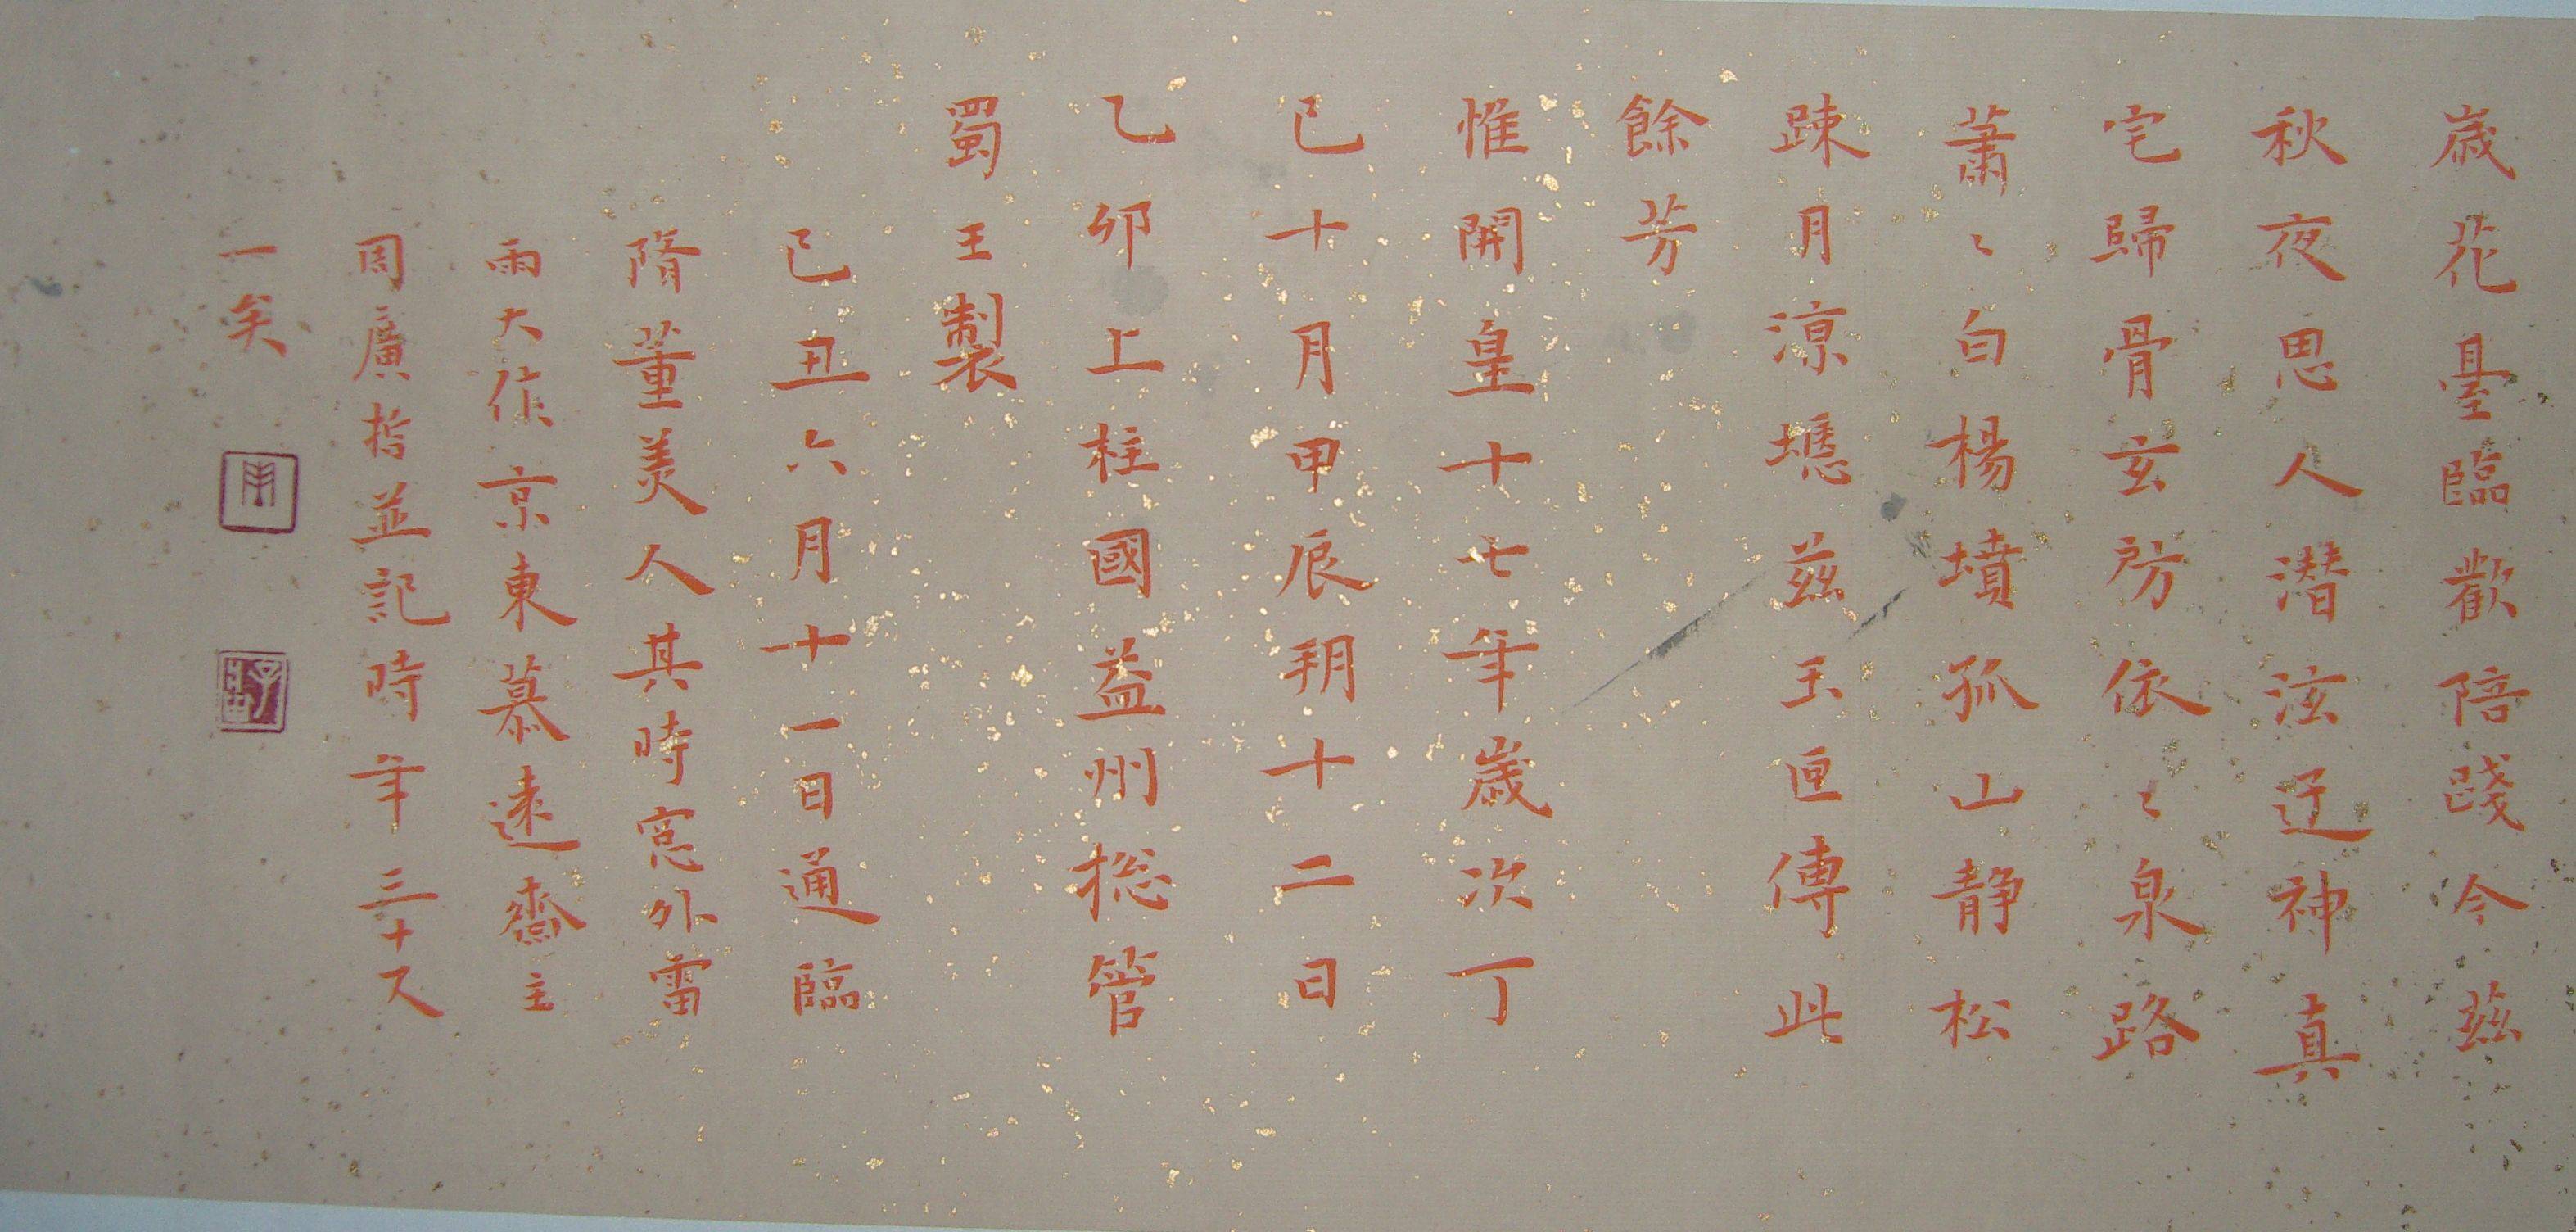 歳花臺臨歡陪踐今茲
秋夜思人潜泫迓神真
宅歸骨玄房依〻泉路
蕭〻白楊墳孤山静松
踈月涼壚茲玉匣傳此
餘芳
惟開皇十七年歳次丁
已十月甲辰朔十二日
乙卯上柱國益州捴管
蜀王製
已丑六月十一日通臨
隋董美人其時窓外雷
雨大作京東慕遠齋主
周廣哲並記時年三十又
一矣